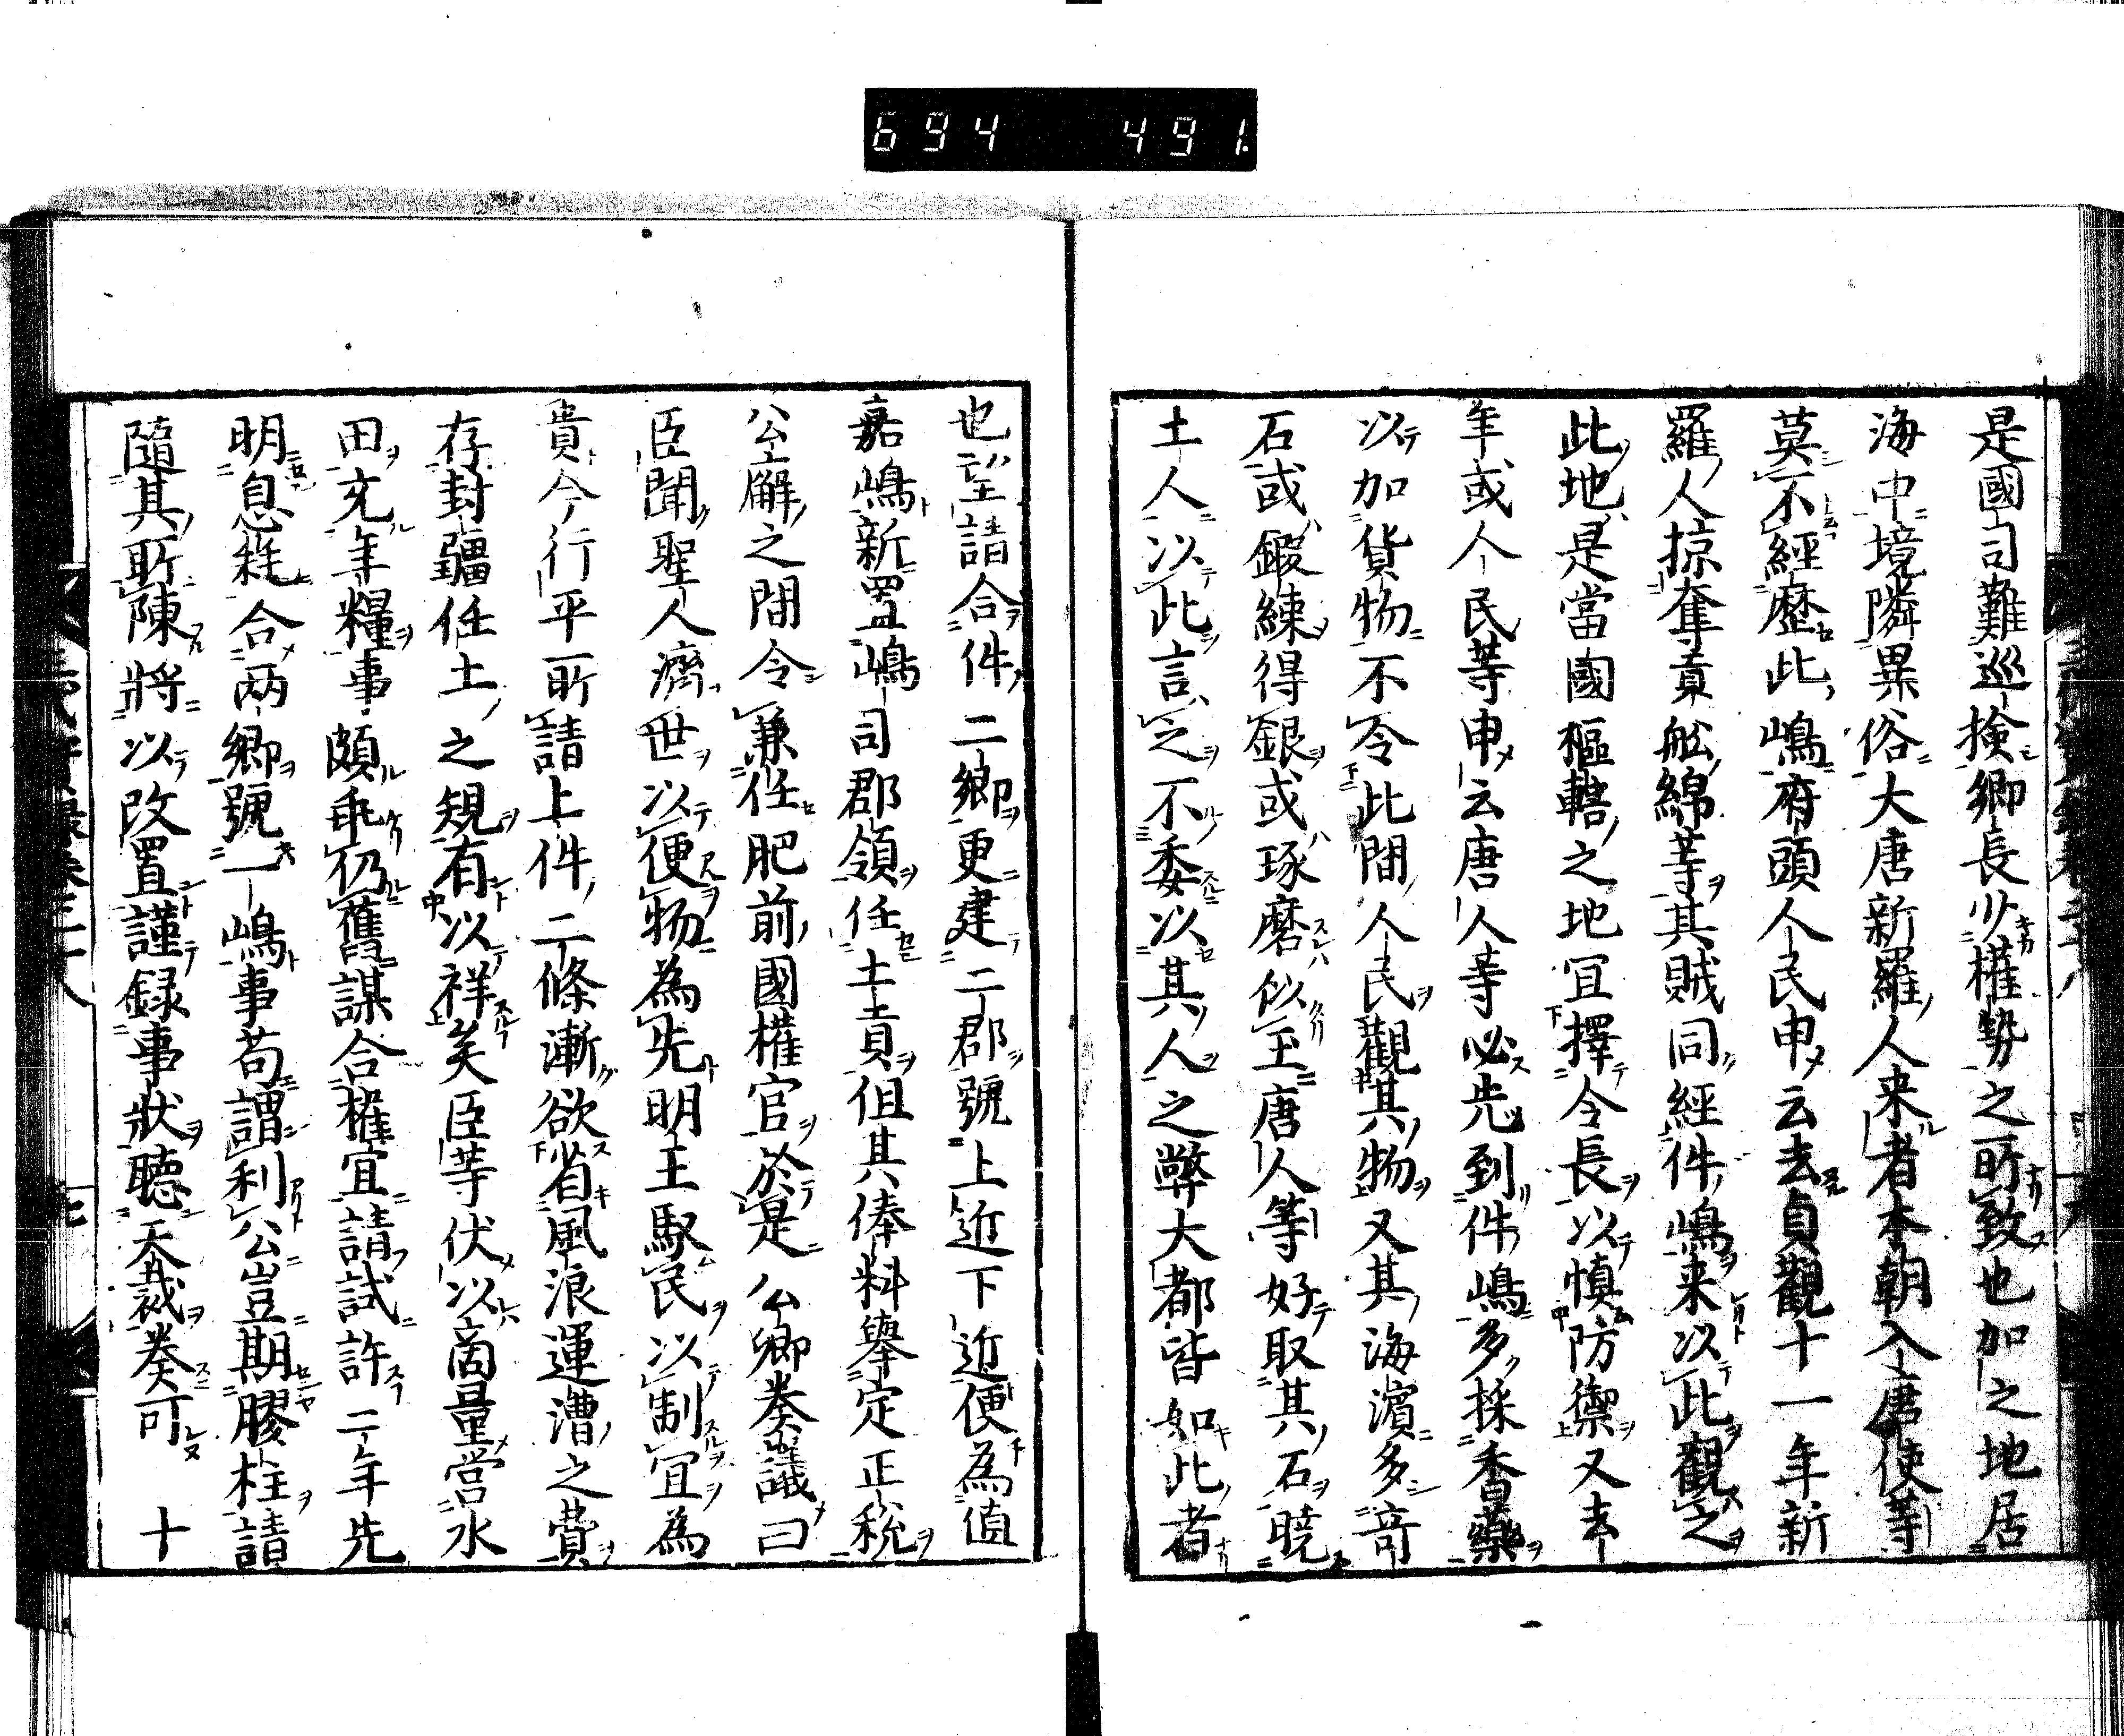 694 491.
是國司難巡撿郷長少權勢之所致也加之地居
海中境隣異俗大唐新羅人来者本朝入唐使等
莫不經歴此嶋府頭人民申云去貞觀十一年新
羅人掠奪貢舩綿等其賊同經件嶋来以此觀之
此地是當國樞轄之地冝擇令長以慎防禦又去
年或人民等申云唐人等必先到件嶋多採香藥
以加貨物不令此間人民觀其物又其海濱多竒
石或鍜練得銀或琢磨似玉唐人等好取其石曉
土人以此言之不委以其人之弊大都皆如此者
也望請合件二郷更建二郡號上近下近便為値
嘉嶋新置嶋司郡領任土貢但其俸料舉定正税
公廨之間令兼任肥前國權官於是公卿奏議曰
臣聞聖人濟世以便物為先明王馭民以制冝為
貴今行平所請上件二條漸欲省風浪運漕之費
存封疆任土之規有以祥矣臣等伏以商量営水
田充年糧事頗乖仍舊謀合權宜請試許二年先
明息耗合兩郷號一嶋事苟謂利公豈期膠柱請
隨其所陳將以改置謹録事狀聽天裁奏可 十